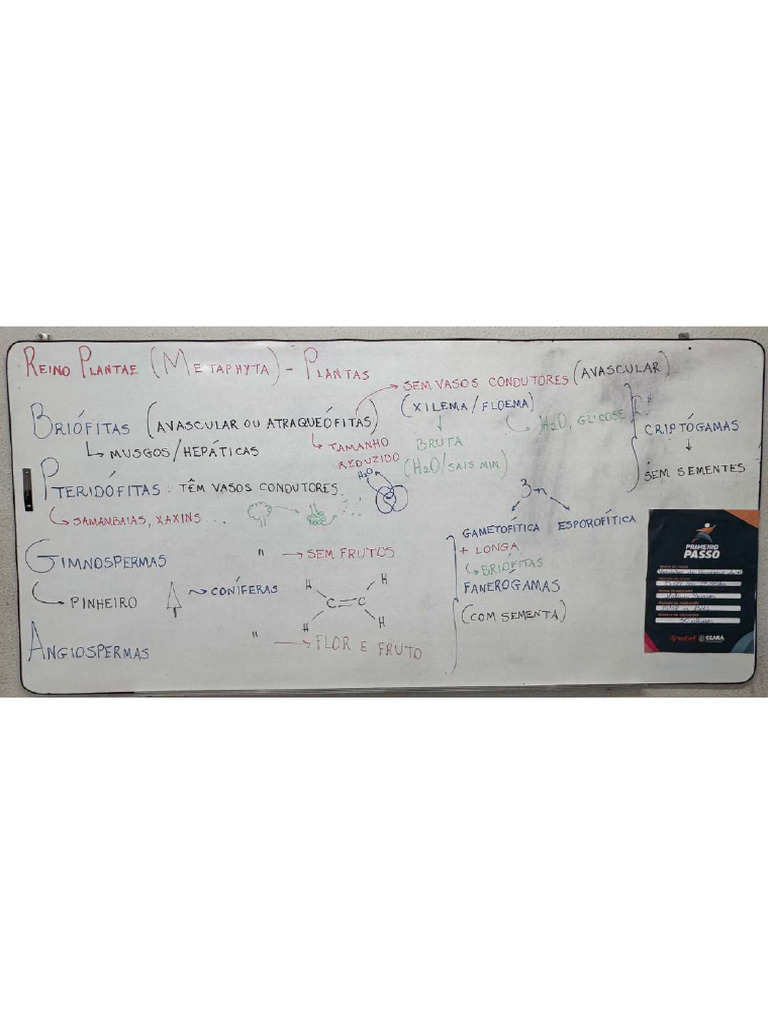 REINO PLANTAE (METAPHYTA) - PLANTAS
BRIÓFITAS (AVASCULAR OU ATRAQUEÓFITAS)
SEM VASOS CONDUTORES (AVASCULAR)
(XILEMA/FLOEMA)
H2O, GLICOSE
BRUTA
(H2O/SAIS MIN)
MUSGOS/HEPÁTICAS
TAMANHO
REDUZIDO
H2O
CRIPTÓGAMAS
SEM SEMENTES
PTERIDÓFITAS: TÊM VASOS CONDUTORES
SAMAMBAIAS, XAXINS...
3n
GAMETOFÍTICA
ESPOROFÍTICA
+ LONGA
BRIÓFITAS
GIMNOSPERMAS " SEM FRUTOS
PINHEIRO
CONÍFERAS
H H
C=C
H H
FANEROGAMAS
(COM SEMENTA)
ANGIOSPERMAS " FLOR E FRUTO
PRIMEIRO
PASSO
CEARÁ